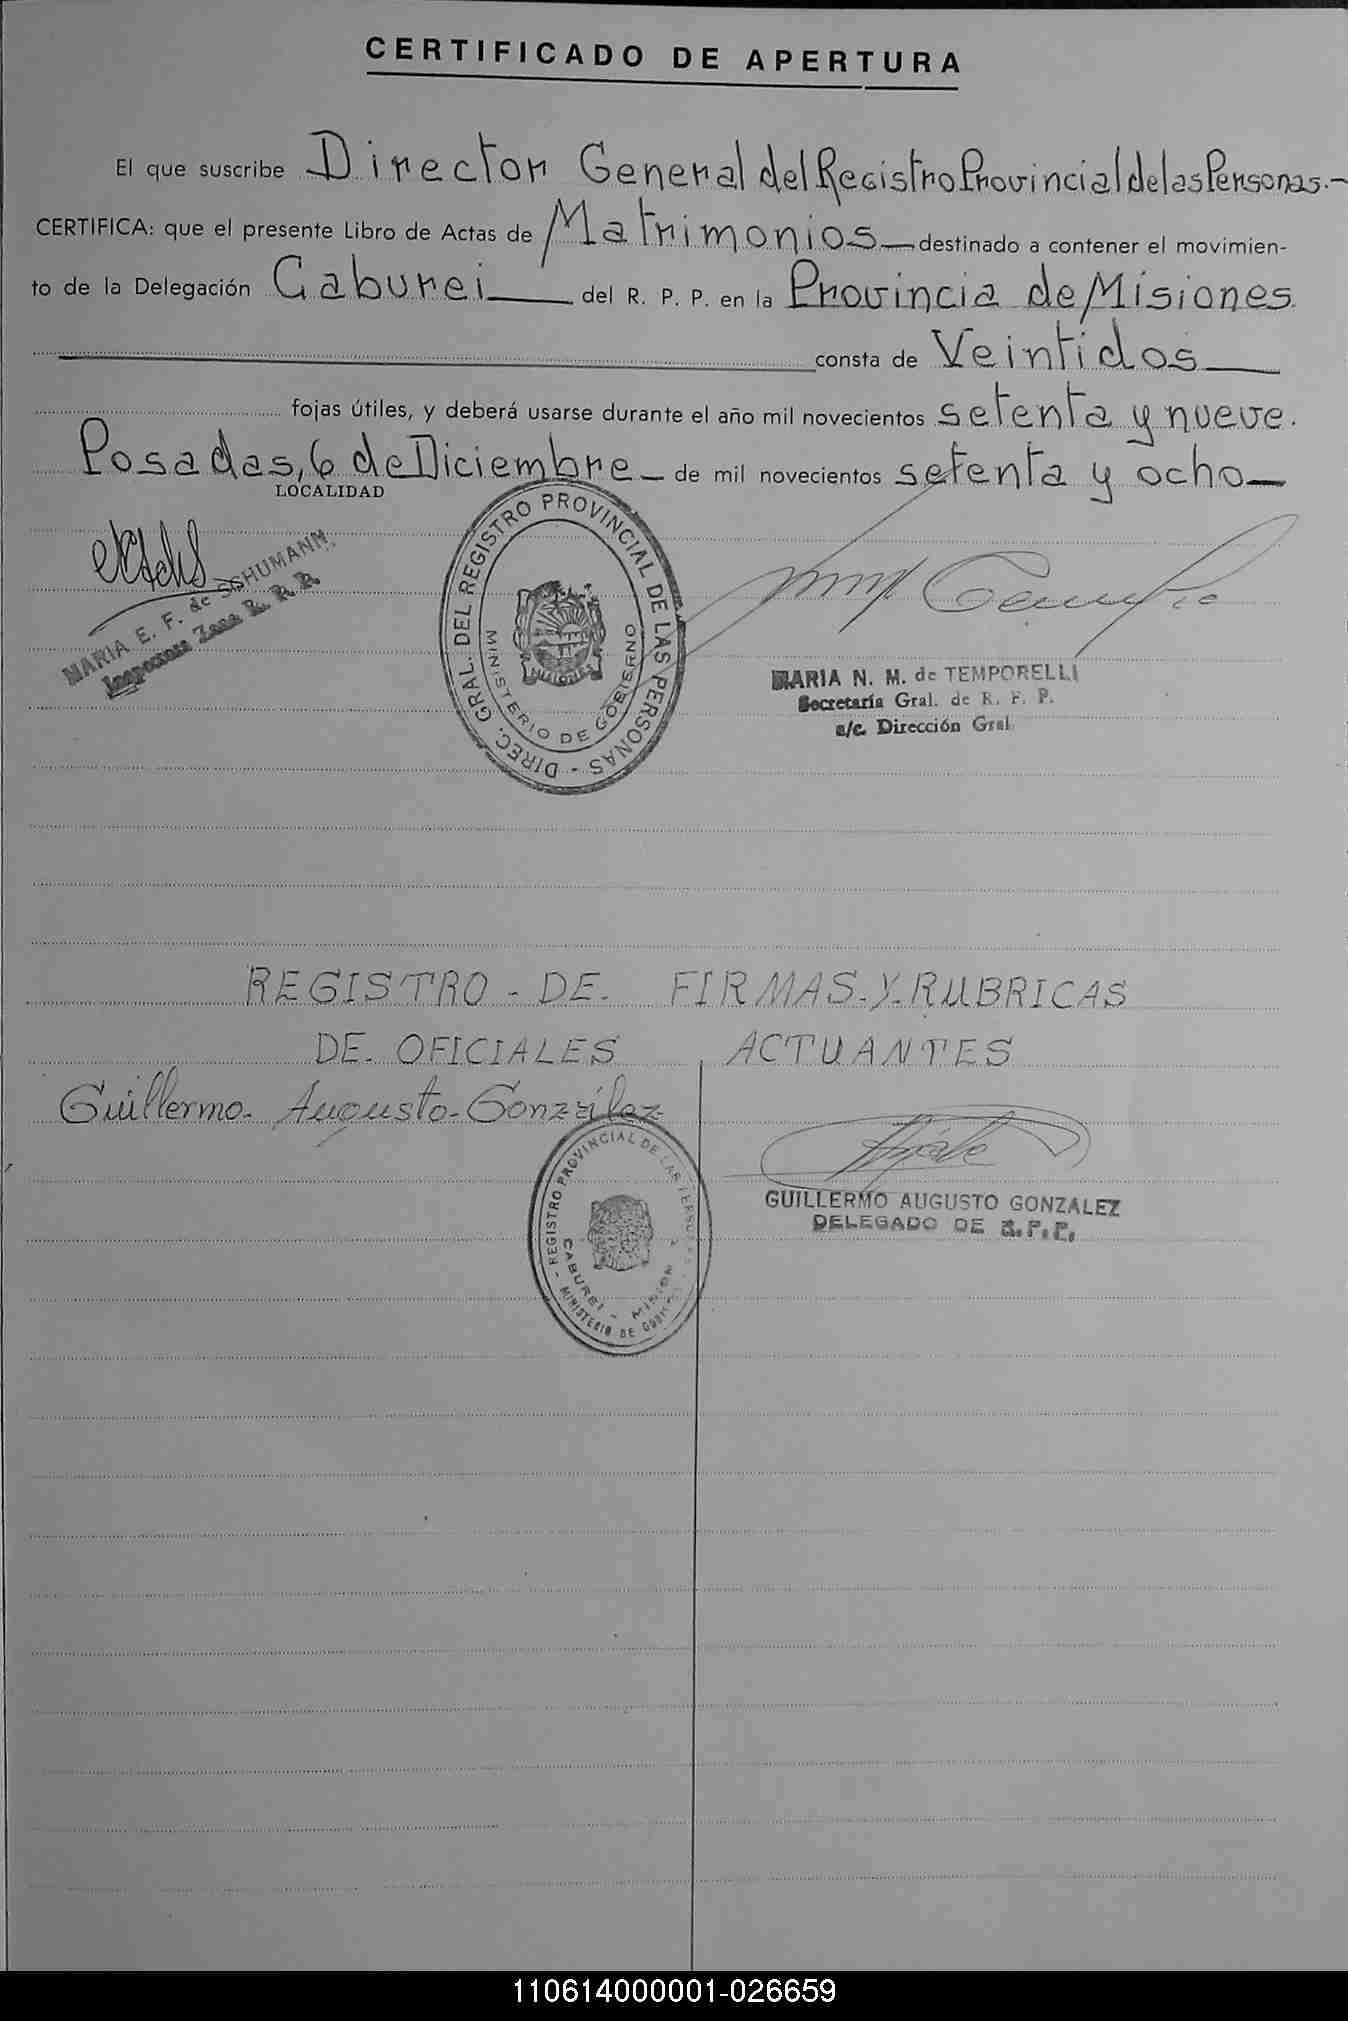 CERTIFICADO DE APERTURA
El que suscribe Director General del Registro Provincial de las Personas.-
CERTIFICA: que el presente Libro de Actas de Matrimonios destinado a contener el movimien-
to de la Delegación Caburei del R. P. P. en la Provincia de Misiones
consta de Veintidos
fojas útiles, y deberá usarse durante el año mil novecientos setenta y nueve.
Posadas, 6 de Diciembre de mil novecientos setenta y ocho
LOCALIDAD
MARIA E. F. de SCHUMANN
Inspectora Zona R. P. P.
DIREC. GRAL. DEL REGISTRO PROVINCIAL DE LAS PERSONAS -
MINISTERIO DE GOBIERNO
MISIONES
MARIA N. M. de TEMPORELLI
Secretaría Gral. de R. P. P.
a/c. Dirección Gral.
REGISTRO - DE. FIRMAS. Y. RUBRICAS
DE. OFICIALES ACTUANTES
Guillermo. Augusto. González
- REGISTRO PROVINCIAL DE LAS PERSONAS
CABUREI - MISIONES
MINISTERIO DE GOBIERNO
GUILLERMO AUGUSTO GONZALEZ
DELEGADO DE R.P.P.
110614000001-026659